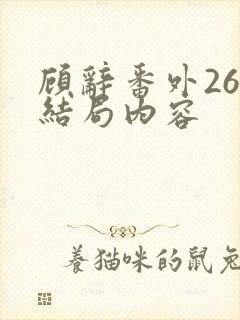 顾辭番外26
結局內容
養猫咪的鼠兔